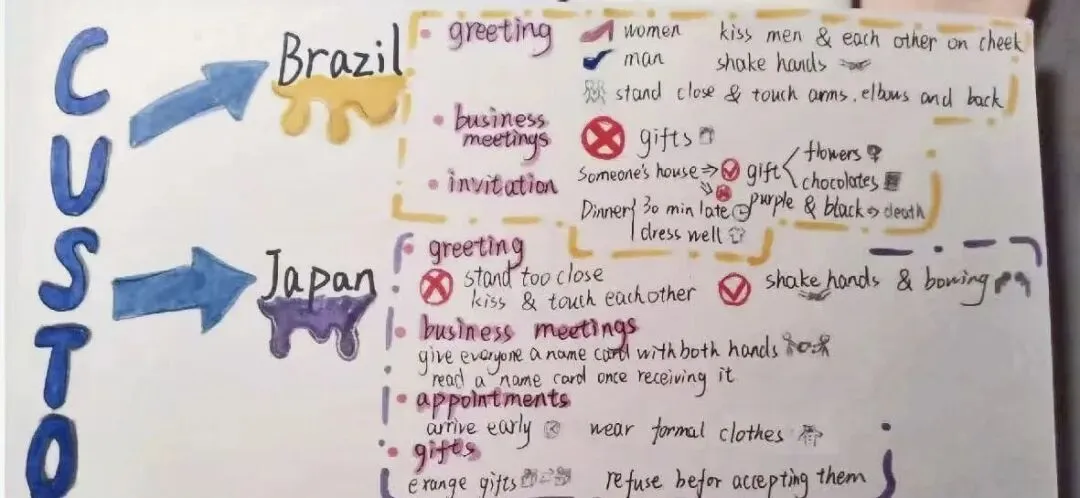 CUSTO
Brazil
greeting
women kiss men & each other on cheek
man shake hands
stand close & touch arms, elbows and back
business meetings
gifts
invitation
Someone's house ⇒ gift
flowers
chocolates
purple & black ⇒ death
Dinner
30 min late
dress well
Japan
greeting
stand too close
kiss & touch eachother
shake hands & bowing
business meetings
give everyone a name card with both hands
read a name card once receiving it
appointments
arrive early wear formal clothes
gifts
exange gifts refuse befor accepting them